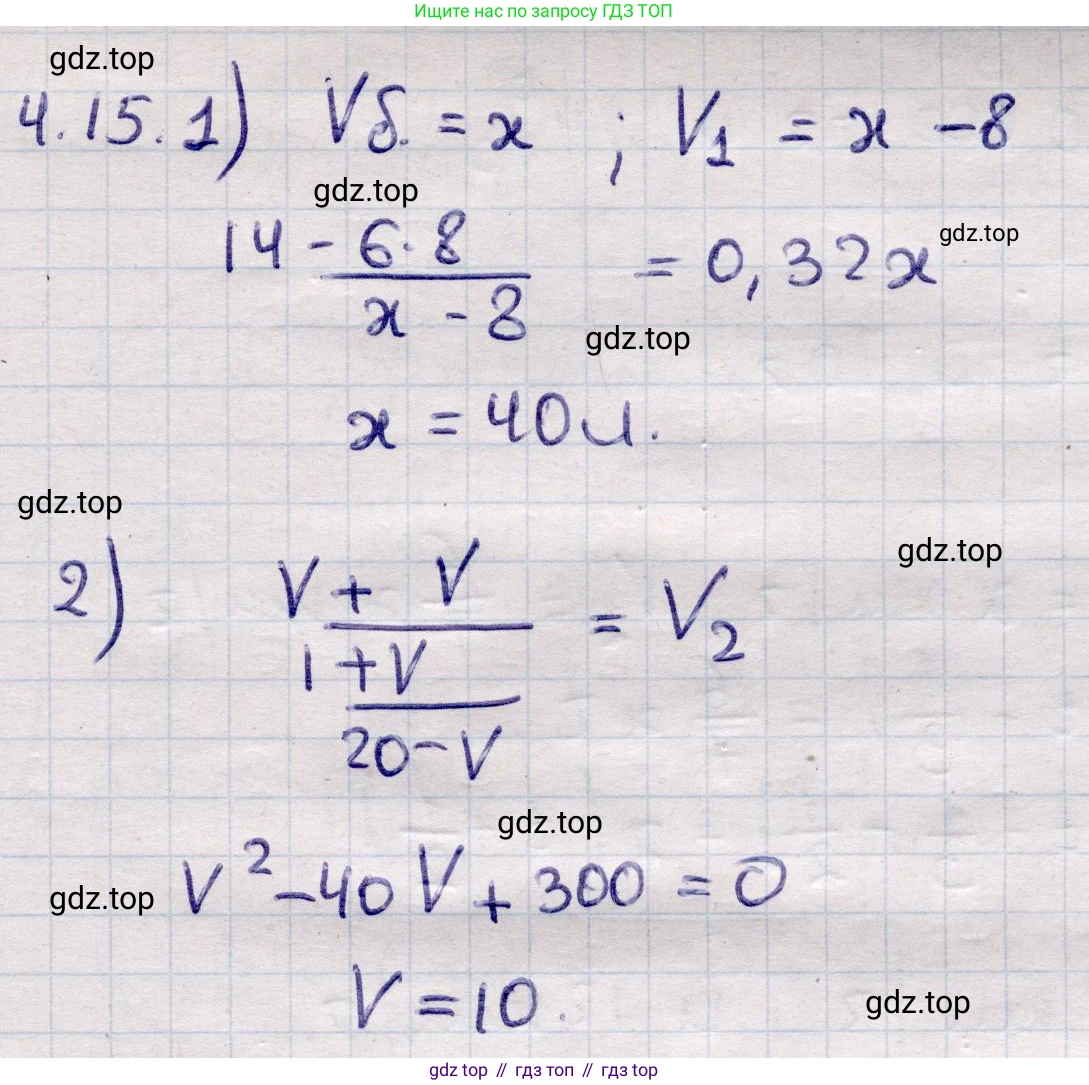 Ищите нас по запросу ГДЗ ТОП
gdz.top
4.15.1) Vб. = x ; V₁ = x - 8
gdz.top
14 - 6·8 / x - 8 = 0,32x
gdz.top
gdz.top
x = 40 л.
gdz.top
gdz.top
2) V + V / 1 + V / 20 - V = V₂
gdz.top
V² - 40V + 300 = 0
gdz.top
V = 10.
gdz.top
gdz.top // гдз топ // gdz top